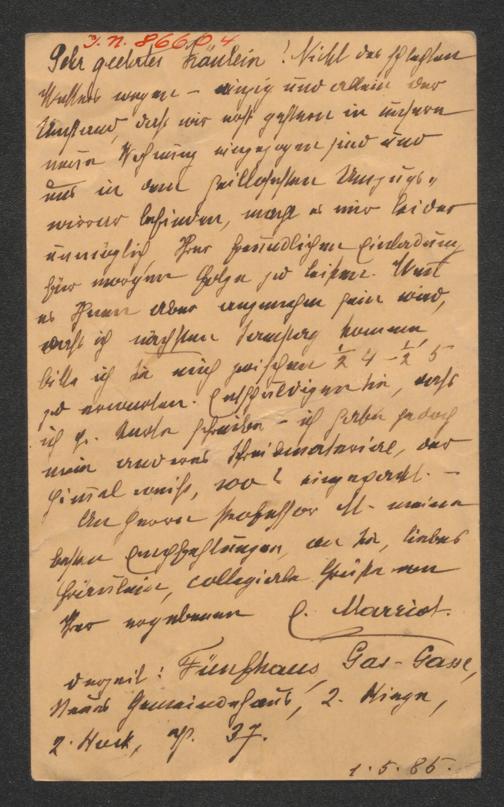 J. N. 86604
Sehr geehrtes Fräulein! Nicht des schlechten
Wetters wegen – einzig und allein der
Umstand, daß wir erst gestern in unsere
neue Wohnung eingezogen sind und
uns in dem heillosesten Umzugs-
wirrwar befinden, macht es mir leider
unmöglich, Ihrer freundlichen Einladung
für morgen Folge zu leisten. Wenn
es Ihnen aber angenehm sein wird,
daß ich nächsten Samstag komme,
bitte ich Sie mich zwischen ½ 4 – ½ 5
zu erwarten. Entschuldigen Sie, daß
ich p. Karte schreibe – ich habe jedoch
mein anderes Schreibmaterial, der
Himmel weiß, wo? eingepackt. –
An Herrn Professor M. meine
besten Empfehlungen, an Sie, liebes
Fräulein, collegiale Grüße von
Ihrer ergebenen E. Marriot.
derzeit: Fünfhaus, Gas-Gasse,
Neues Gemeindehaus, 2. Stiege,
2. Stock, Th. 37.
1.5.85.